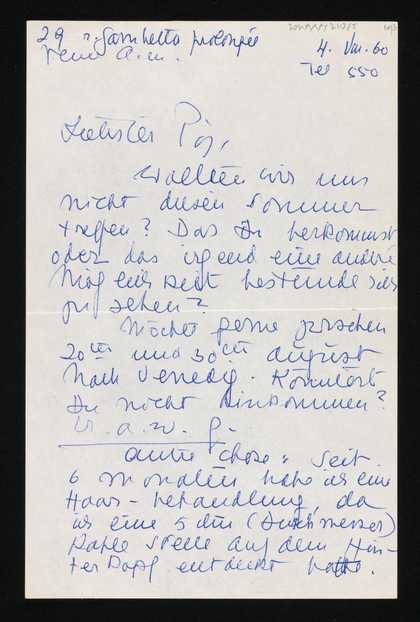 29 r. Gambetta prolongée
Vence A.M.
4. VIII. 60
Tel 550
Liebster
Wollten wir uns
nicht diesen Sommer
treffen? Das Du herkommst
oder das irgend eine andre
Möglichkeit bestünde sich
zu sehen?
Möchte gerne zwischen
20ten und 30ten August
nach Venedig. Könntest
Du nicht hinkommen?
U. a. w. g.
autre chose: Seit
6 Monaten habe ich eine
Haar-behandlung, da
ich eine 5 cm (Durchmesser)
kahle Stelle auf dem Hin-
terkopf entdeckt hatte.